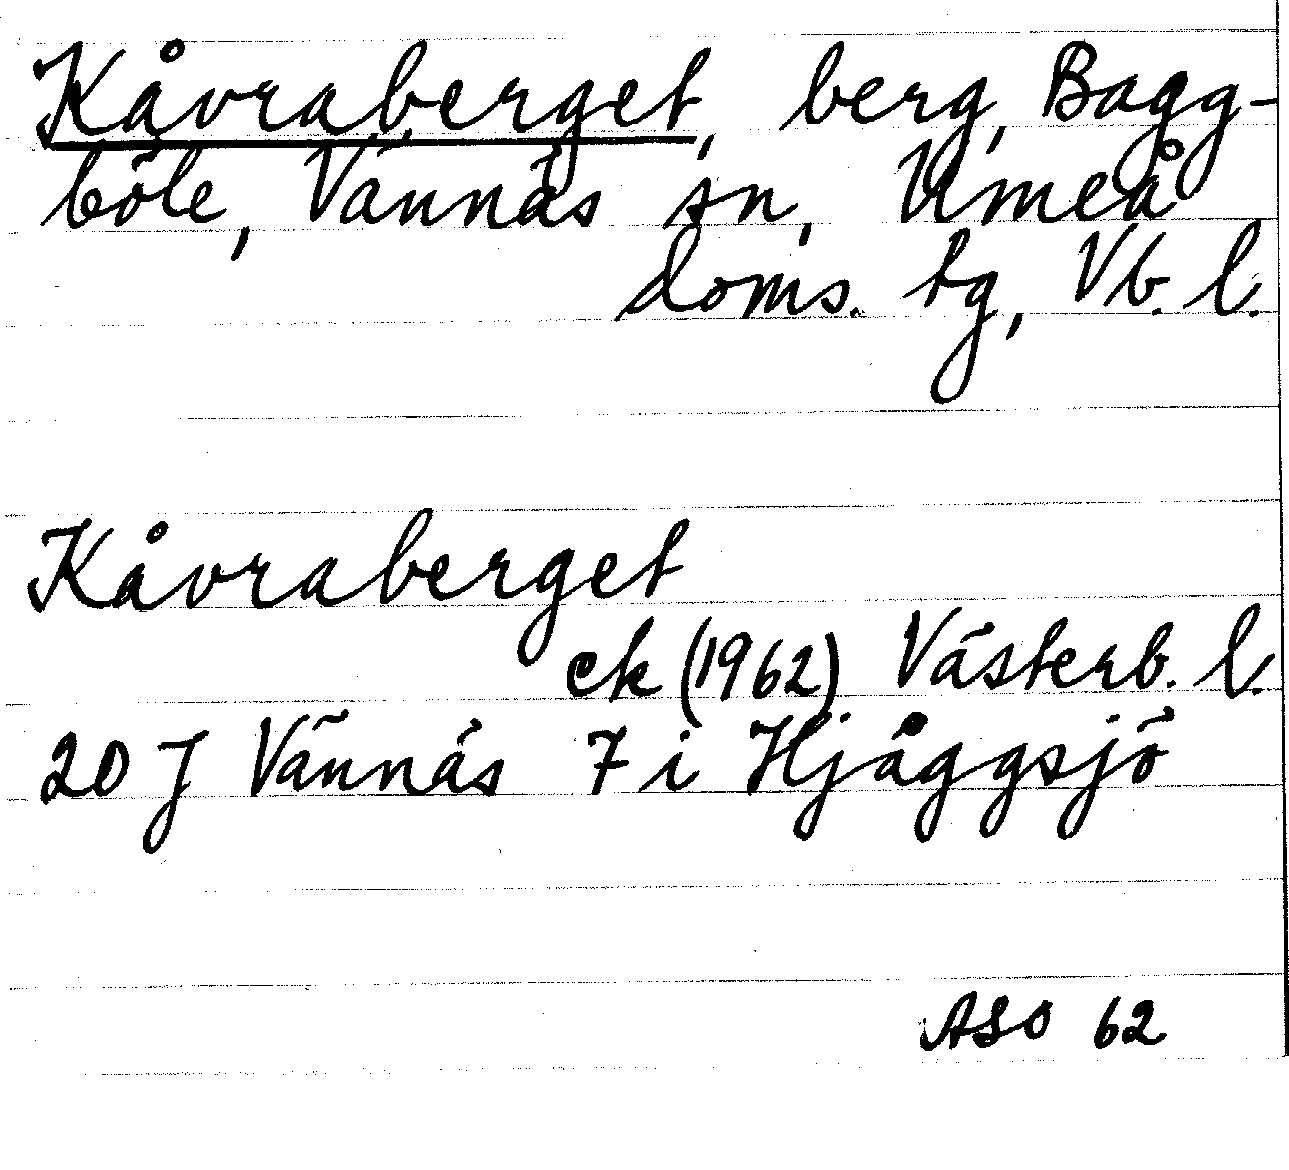 Kåvraberget, berg, Bagg-
böle, Vännäs sn, Umeå
doms. tg, Vb. l.
Kåvraberget
ek (1962) Västerb. l.
20 J Vännäs 7 i Hjåggsjö
ASO 62